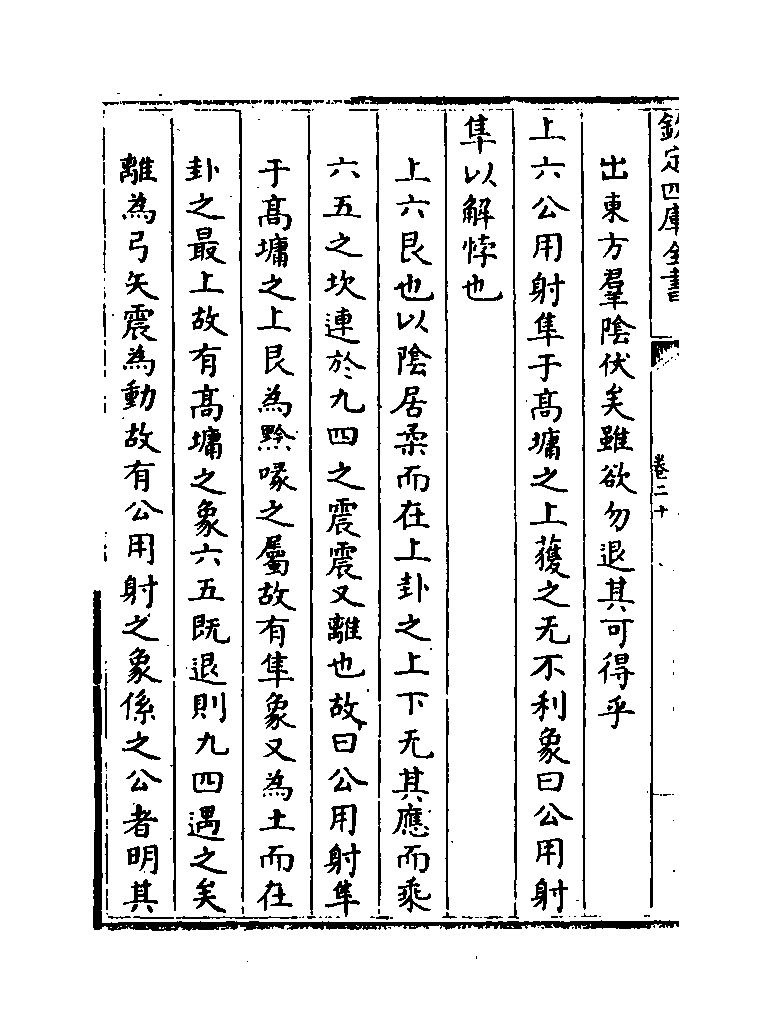 欽定四庫全書
卷二十
出東方羣陰伏矣雖欲勿退其可得乎
上六公用射隼于髙墉之上獲之无不利象曰公用射
隼以解悖也
上六艮也以陰居柔而在上卦之上下无其應而乘
六五之坎連於九四之震震又離也故曰公用射隼
于髙墉之上艮為黔喙之屬故有隼象又為土而在
卦之最上故有髙墉之象六五既退則九四遇之矣
離為弓矢震為動故有公用射之象係之公者明其